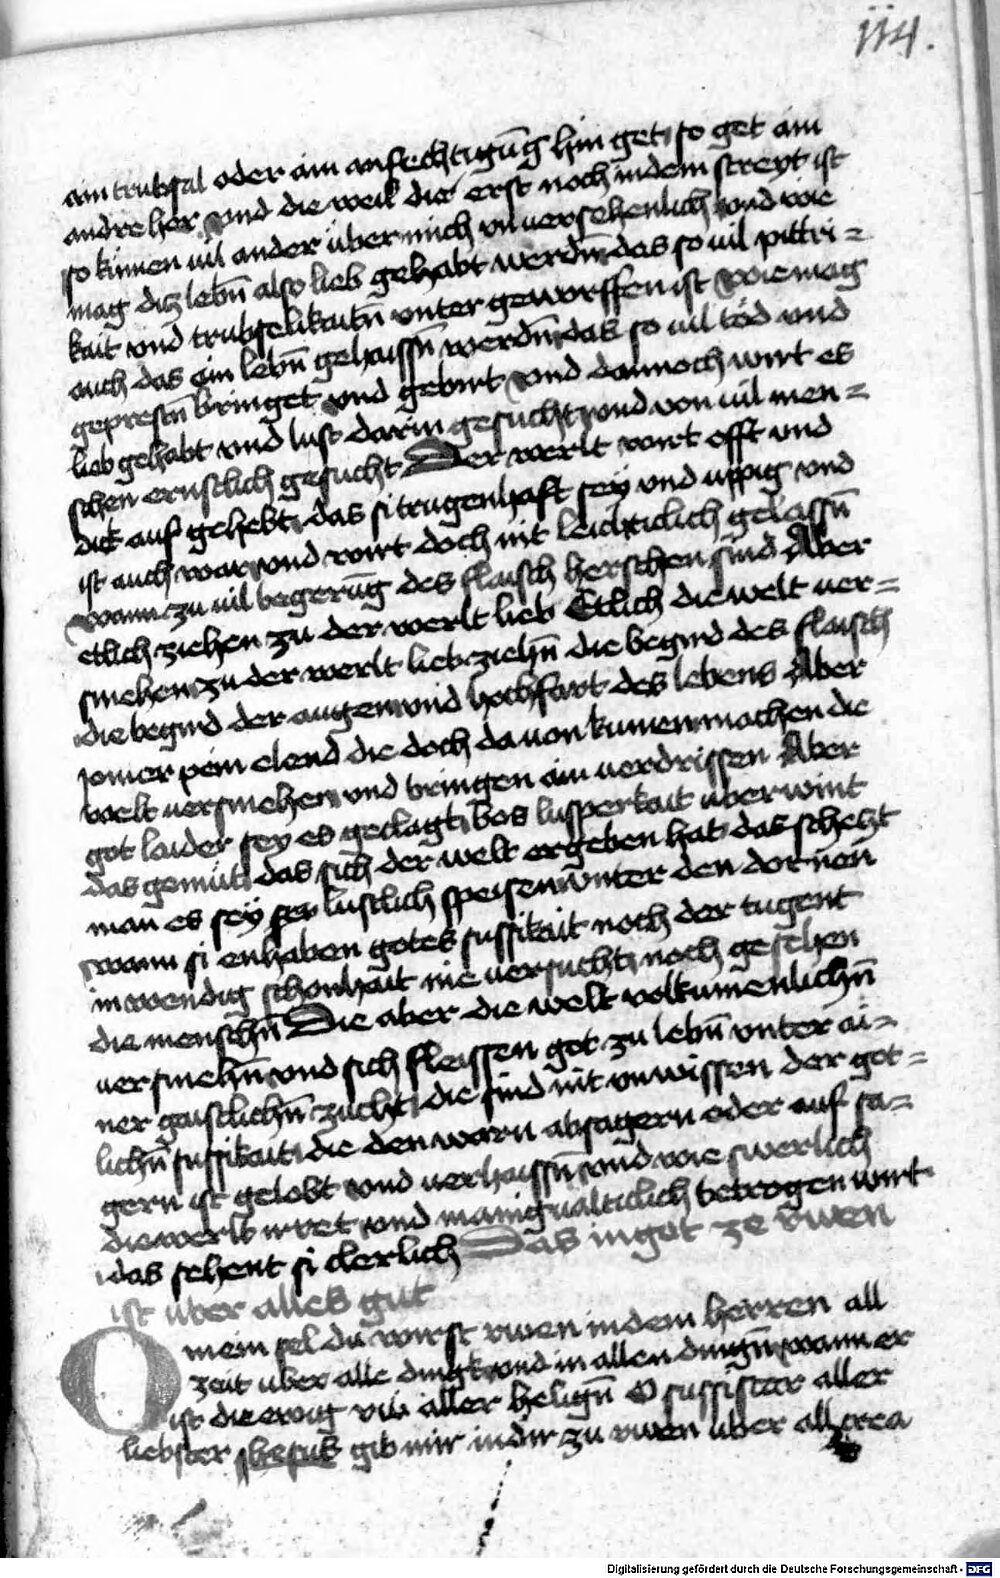 114.
ain trubsal oder ain anfechtigūg hin get so get ain
andre her vnd die weil die erst noch in dem streyt ist
so kumen uil ander über mich vnuersehenlich vnd wie
mag diz lebn̄ also lieb gehabt werdn̄ das so uil pittri=
kait vnd trubselikaitn̄ vnter geworffen ist wie mag
auch das ain lebn̄ gehaissn̄ werdn̄ das so uil töd vnd
geprestn̄ bringet vnd gebirt vnd dannoch wirt es
lieb gehabt vnd lust darin gesucht vnd von uil men=
schen ernstlich gesucht Der werlt wirt offt vnd
dick auf gehebt das si trugenhaft sey vnd uppig vnd
ist auch war vnd wirt doch nit leichticlich gelassn̄
wann zu uil begerūg des flaisch herschen sind Aber
etlich ziehen zu der werlt lieb Etlich die welt uer=
smehen zu der werlt lieb ziehn̄ die begird des flaisch
die begird der augen vnd hochfart des lebens Aber
jomer pein elend die doch da uon kumen machen die
welt uersmehen vnd bringen ain uerdrissen Aber
got laider sey es geclagt bos lusperkait uberwint
das gemüt das sich der welt ergeben hat das schetzt
man es sey ser lustlich speisen vnter den dornen
wann si enhaben gotes sussikait noch der tugent
inwendig schonhait nie uersucht noch gesehen
die menschn̄ Die aber die welt volkumenlichn̄
uersmehn̄ vnd sich fleissen got zu lebn̄ vnter ai=
ner gaistlichn̄ zucht die sind nit vnwissen der got=
lichn̄ sussikait die den warn absagern oder auf sa=
gern ist gelobt vnd uerhaissn̄ vnd wie swerlich
die werlt irret vnd manigualticlich betrogen wirt
das sehent si clerlich Das in got ze rwen
ist uber alles gut
O mein sel du wirst rwen in dem herren all
zeit uber alle dingk vnd in allen dingn̄ wann er
ist die ewig rw aller helign̄ O sussister aller
liebster jhesus gib mir in dir zu rwen uber all crea
Digitalisierung gefördert durch die Deutsche Forschungsgemeinschaft - DFG